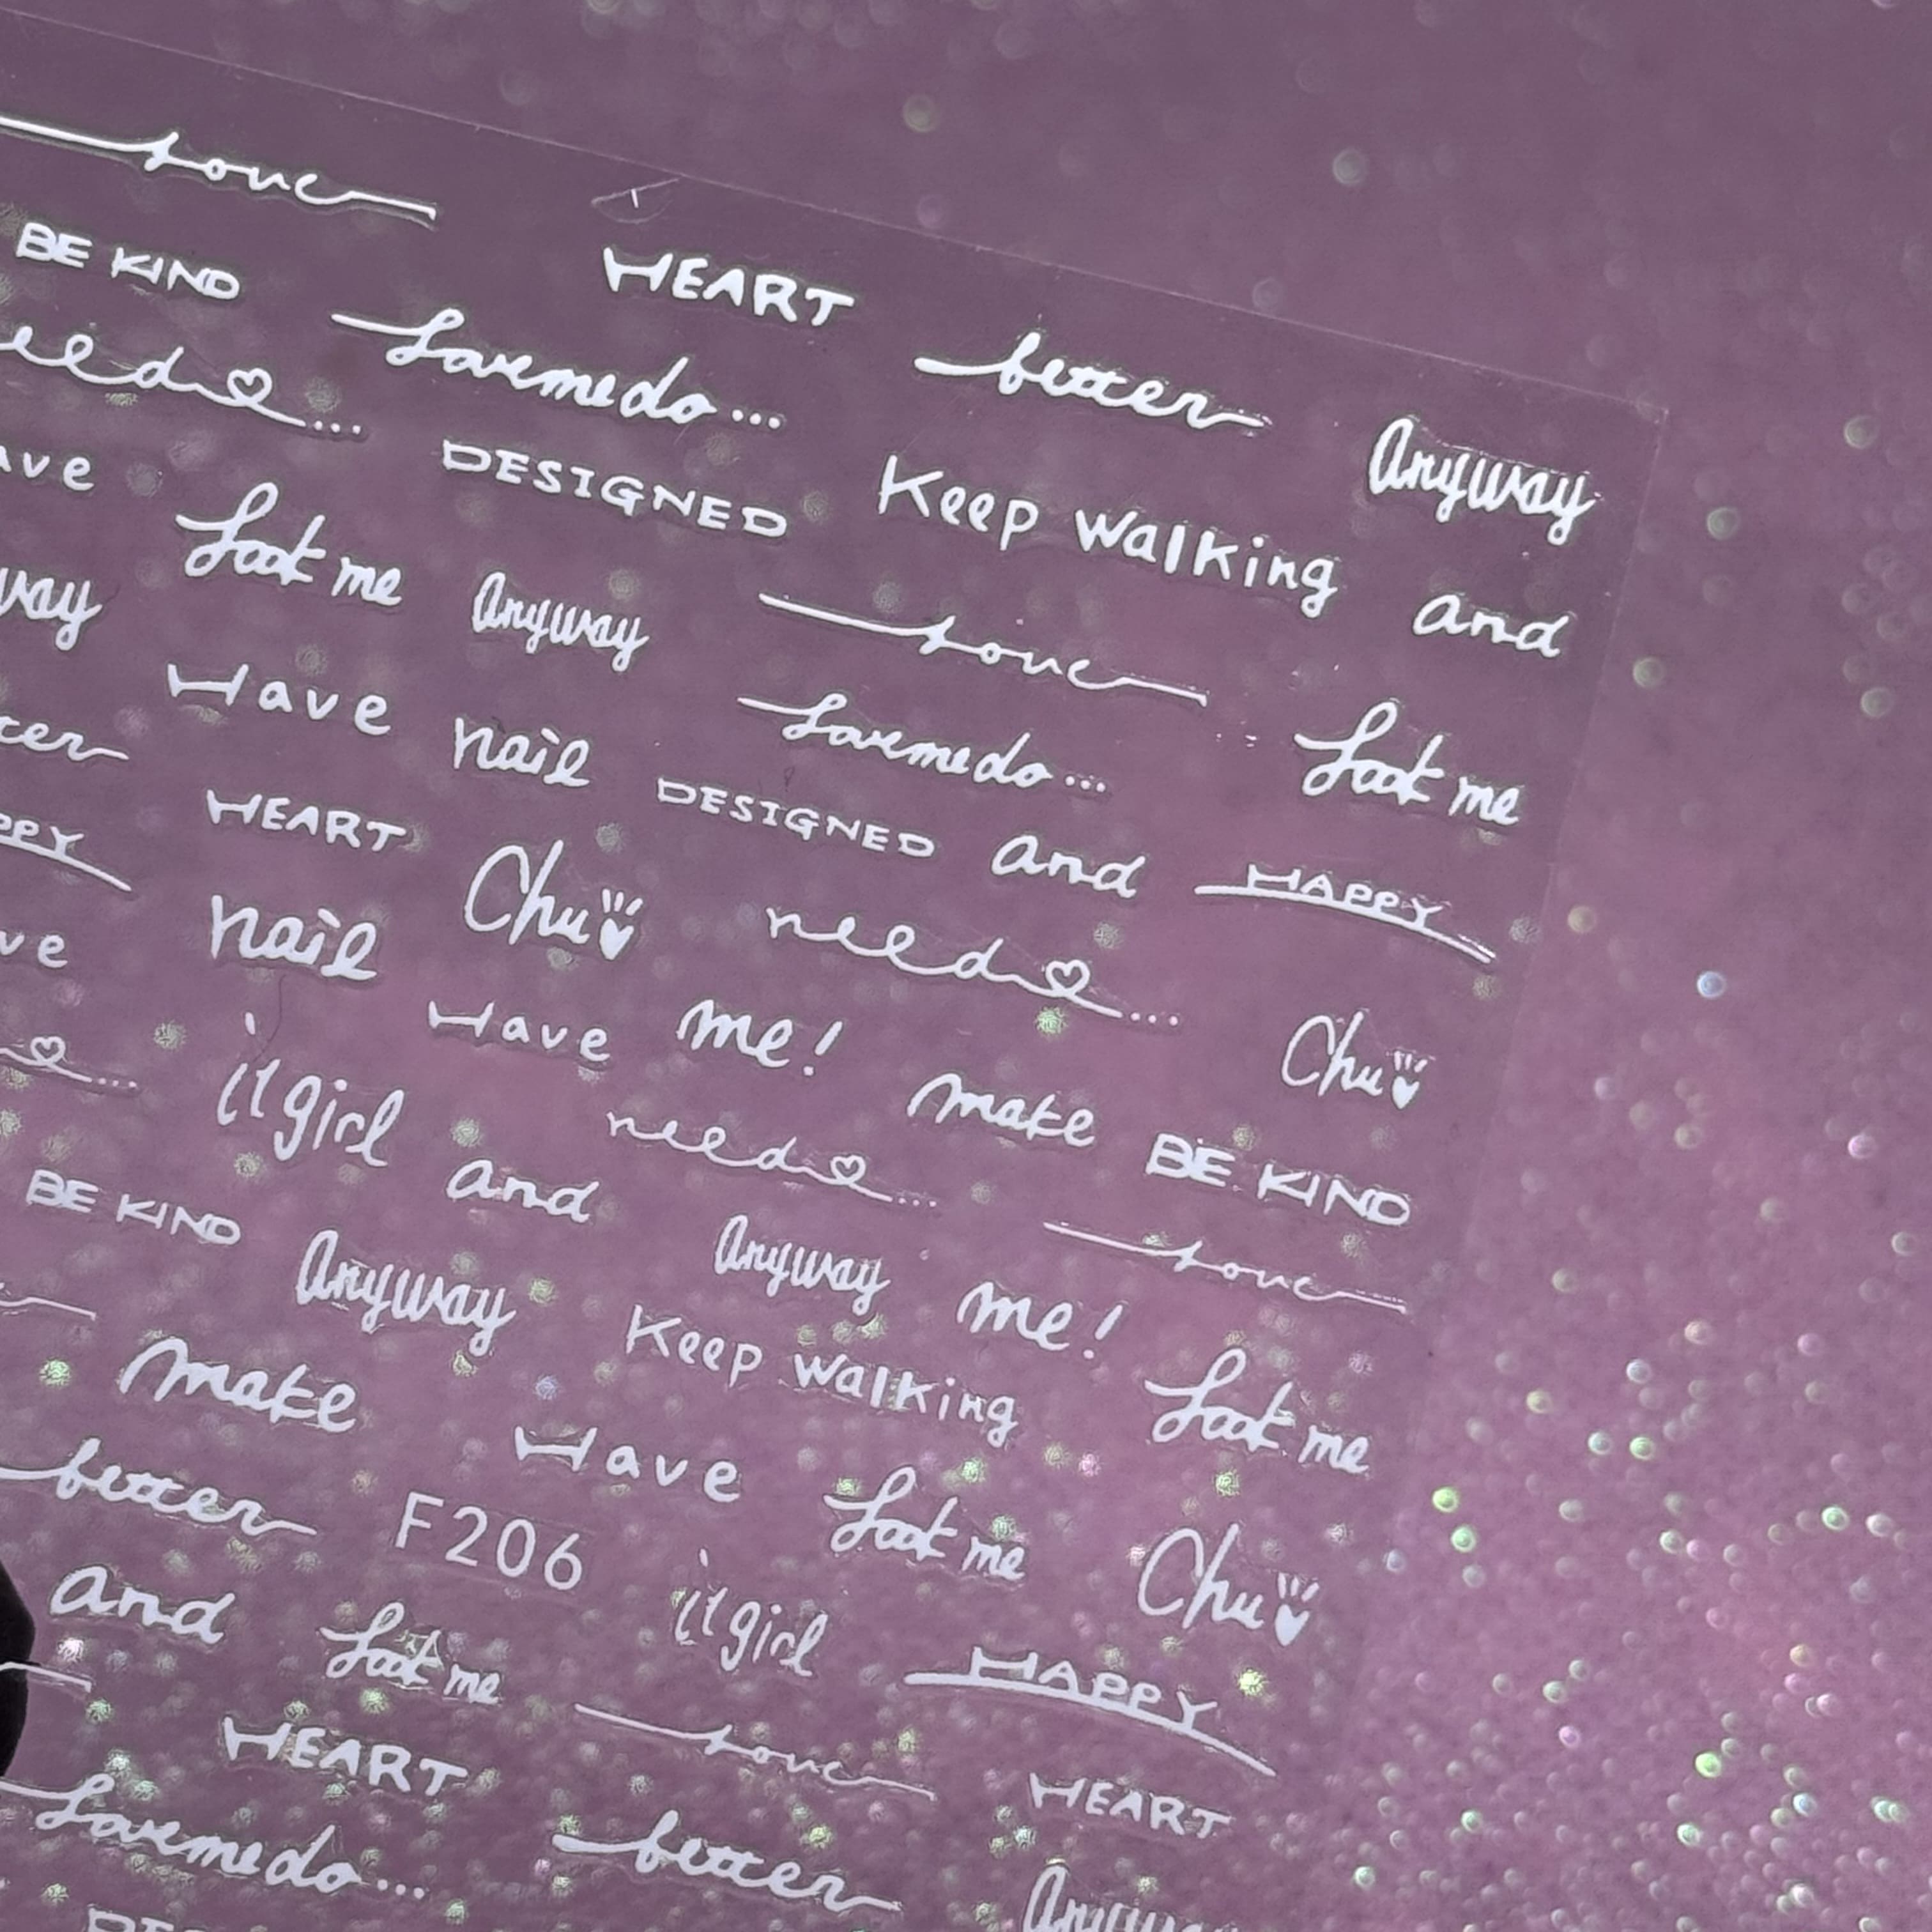 love
BE KIND HEART
need Lovemedo... better Anyway
DESIGNED Keep walking and
Look me Anyway love Look me
Have nail Lovemedo...
HEART DESIGNED and HAPPY
nail Chu need...
Chu
Have me! make BE KIND
it girl and need... love
BE KIND Anyway Anyway me!
make Keep walking Look me
better Have Look me Chu
F206
and Look me it girl HAPPY
HEART love HEART
Lovemedo... better Anyway